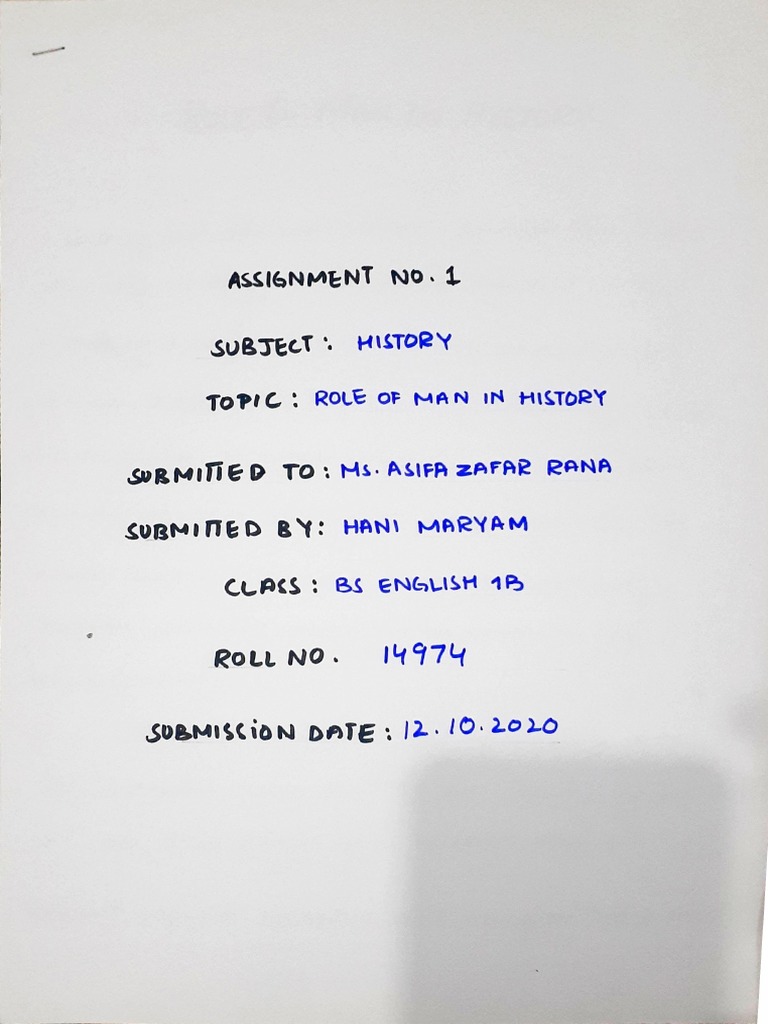 ASSIGNMENT NO. 1
SUBJECT: HISTORY
TOPIC: ROLE OF MAN IN HISTORY
SUBMITTED TO: MS. ASIFA ZAFAR RANA
SUBMITTED BY: HANI MARYAM
CLASS: BS ENGLISH 1B
ROLL NO. 14974
SUBMISSION DATE: 12.10.2020